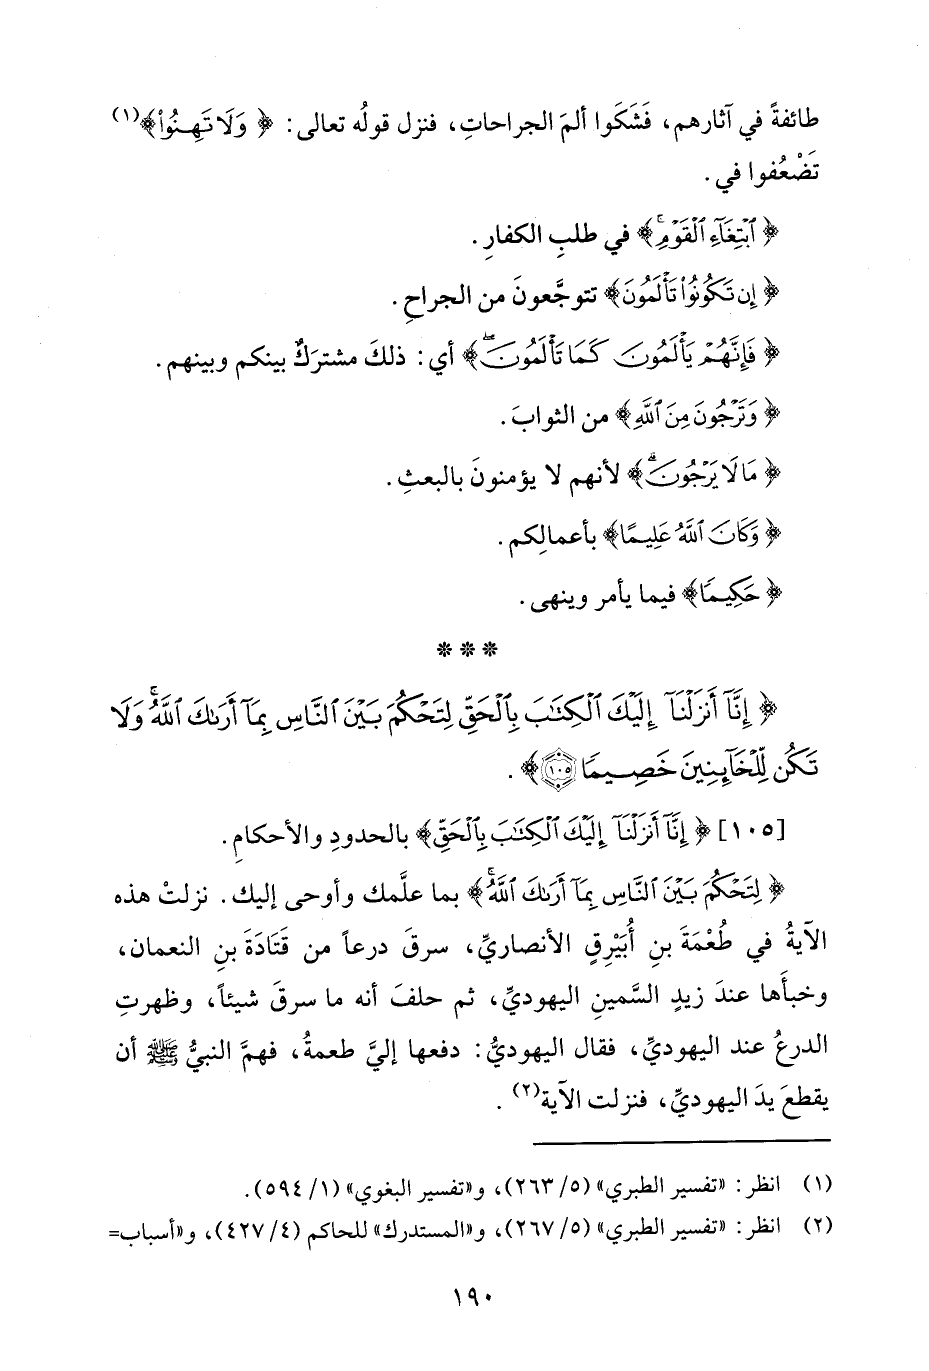 طائفةً في آثارهم، فَشَكَوا ألمَ الجراحاتِ، فنزل قولُه تعالى: ﴿ وَلَا تَهِنُوا۟﴾(١)
تَضْعُفوا في .
﴿ ٱبْتِغَآءِ ٱلْقَوْمِۖ﴾ في طلبِ الكفارِ .
﴿ إِن تَكُونُوا۟ تَأْلَمُونَ﴾ تتوجَّعونَ من الجراحِ .
﴿ فَإِنَّهُمْ يَأْلَمُونَ كَمَا تَأْلَمُونَۖ﴾ أي: ذلكَ مشتركٌ بينكم وبينهم .
﴿ وَتَرْجُونَ مِنَ ٱللَّهِ﴾ من الثوابَ .
﴿ مَا لَا يَرْجُونَۗ﴾ لأنهم لا يؤمنونَ بالبعثِ .
﴿ وَكَانَ ٱللَّهُ عَلِيمًا﴾ بأعمالِكم .
﴿ حَكِيمًا﴾ فيما يأمر وينهى .
* * *
﴿ إِنَّآ أَنزَلْنَآ إِلَيْكَ ٱلْكِتَٰبَ بِٱلْحَقِّ لِتَحْكُمَ بَيْنَ ٱلنَّاسِ بِمَآ أَرَىٰكَ ٱللَّهُۚ وَلَا
تَكُن لِّلْخَآئِنِينَ خَصِيمًا ١٠٥﴾ .
[١٠٥] ﴿ إِنَّآ أَنزَلْنَآ إِلَيْكَ ٱلْكِتَٰبَ بِٱلْحَقِّ﴾ بالحدودِ والأحكامِ .
﴿ لِتَحْكُمَ بَيْنَ ٱلنَّاسِ بِمَآ أَرَىٰكَ ٱللَّهُۚ﴾ بما علَّمك وأوحى إليك . نزلتْ هذه
الآيةُ في طُعْمَةَ بنِ أُبَيْرِقٍ الأنصاريِّ، سرقَ درعاً من قَتَادَةَ بنِ النعمان،
وخبأَها عندَ زيدٍ السَّمينِ اليهوديِّ، ثم حلفَ أنه ما سرقَ شيئاً، وظهرتِ
الدرعُ عند اليهوديِّ، فقال اليهوديُّ: دفعها إليَّ طعمةُ، فهمَّ النبيُّ ﷺ أن
يقطعَ يدَ اليهوديِّ، فنزلت الآية(٢) .
(١) انظر: «تفسير الطبري» (٥/ ٢٦٣)، و«تفسير البغوي» (١/ ٥٩٤).
(٢) انظر: «تفسير الطبري» (٥/ ٢٦٧)، و«المستدرك» للحاكم (٤/ ٤٢٧)، و«أسباب=
١٩٠